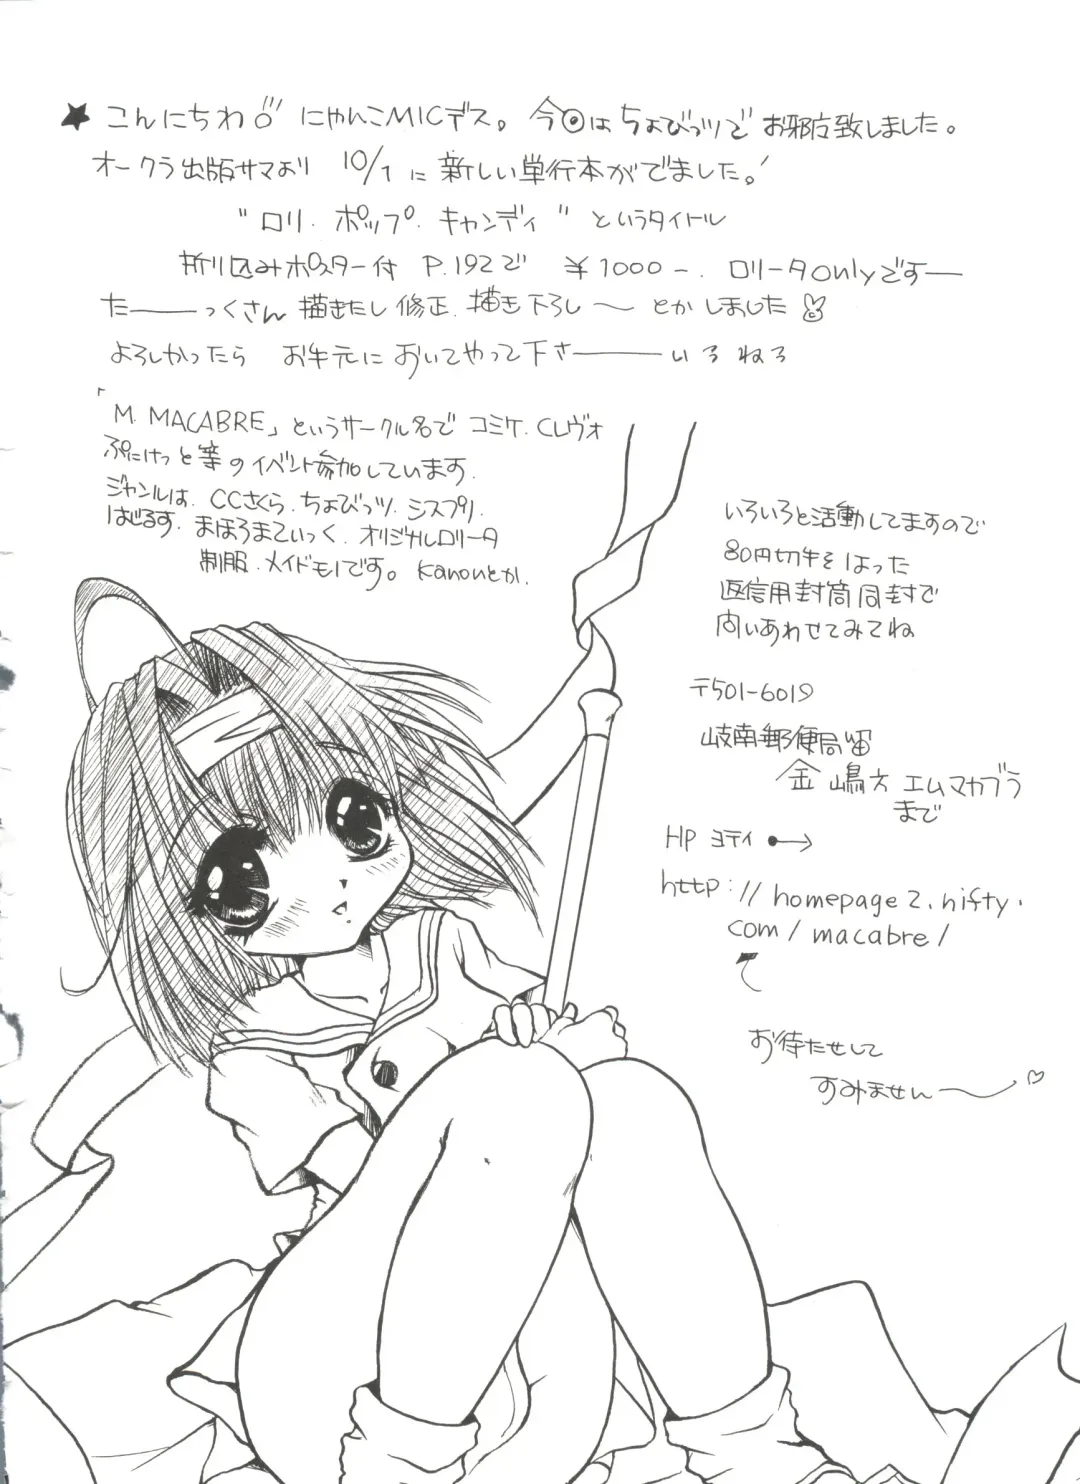 ★ こんにちわ にゃんこMICデス。今回はちょびっツでお邪广致しました。
オークラ出版サマより 10/1に新しい単行本がでました。
“ロリ・ポップ・キャンディ”というタイトル
折り込みポスター付 P.192で ¥1000-. ロリータonlyですー
たーーっくさん 描きたし 修正. 描き下ろし〜とかしました
よろしかったら お手元においてやって下さーーいろねろ
「M. MACABRE」というサークル名で コミケ. CLヴォ
ぷにけっと等のイベント参加しています.
ジャンルは. CCさくら. ちょびっツ. シスプリ.
はじるす. まほろまてぃっく. オリジナルロリータ
制服. メイドモノです。Kanonとか.
いろいろと活動してますので
80円切手をはった
返信用封筒同封で
問いあわせてみてね
〒501-6019
岐南郵便局留
エムマカブラ
まで
HP ヨテイ ●→
http://homepage2.nifty.
com/macabre/
お待たせして
すみませんー〜♡